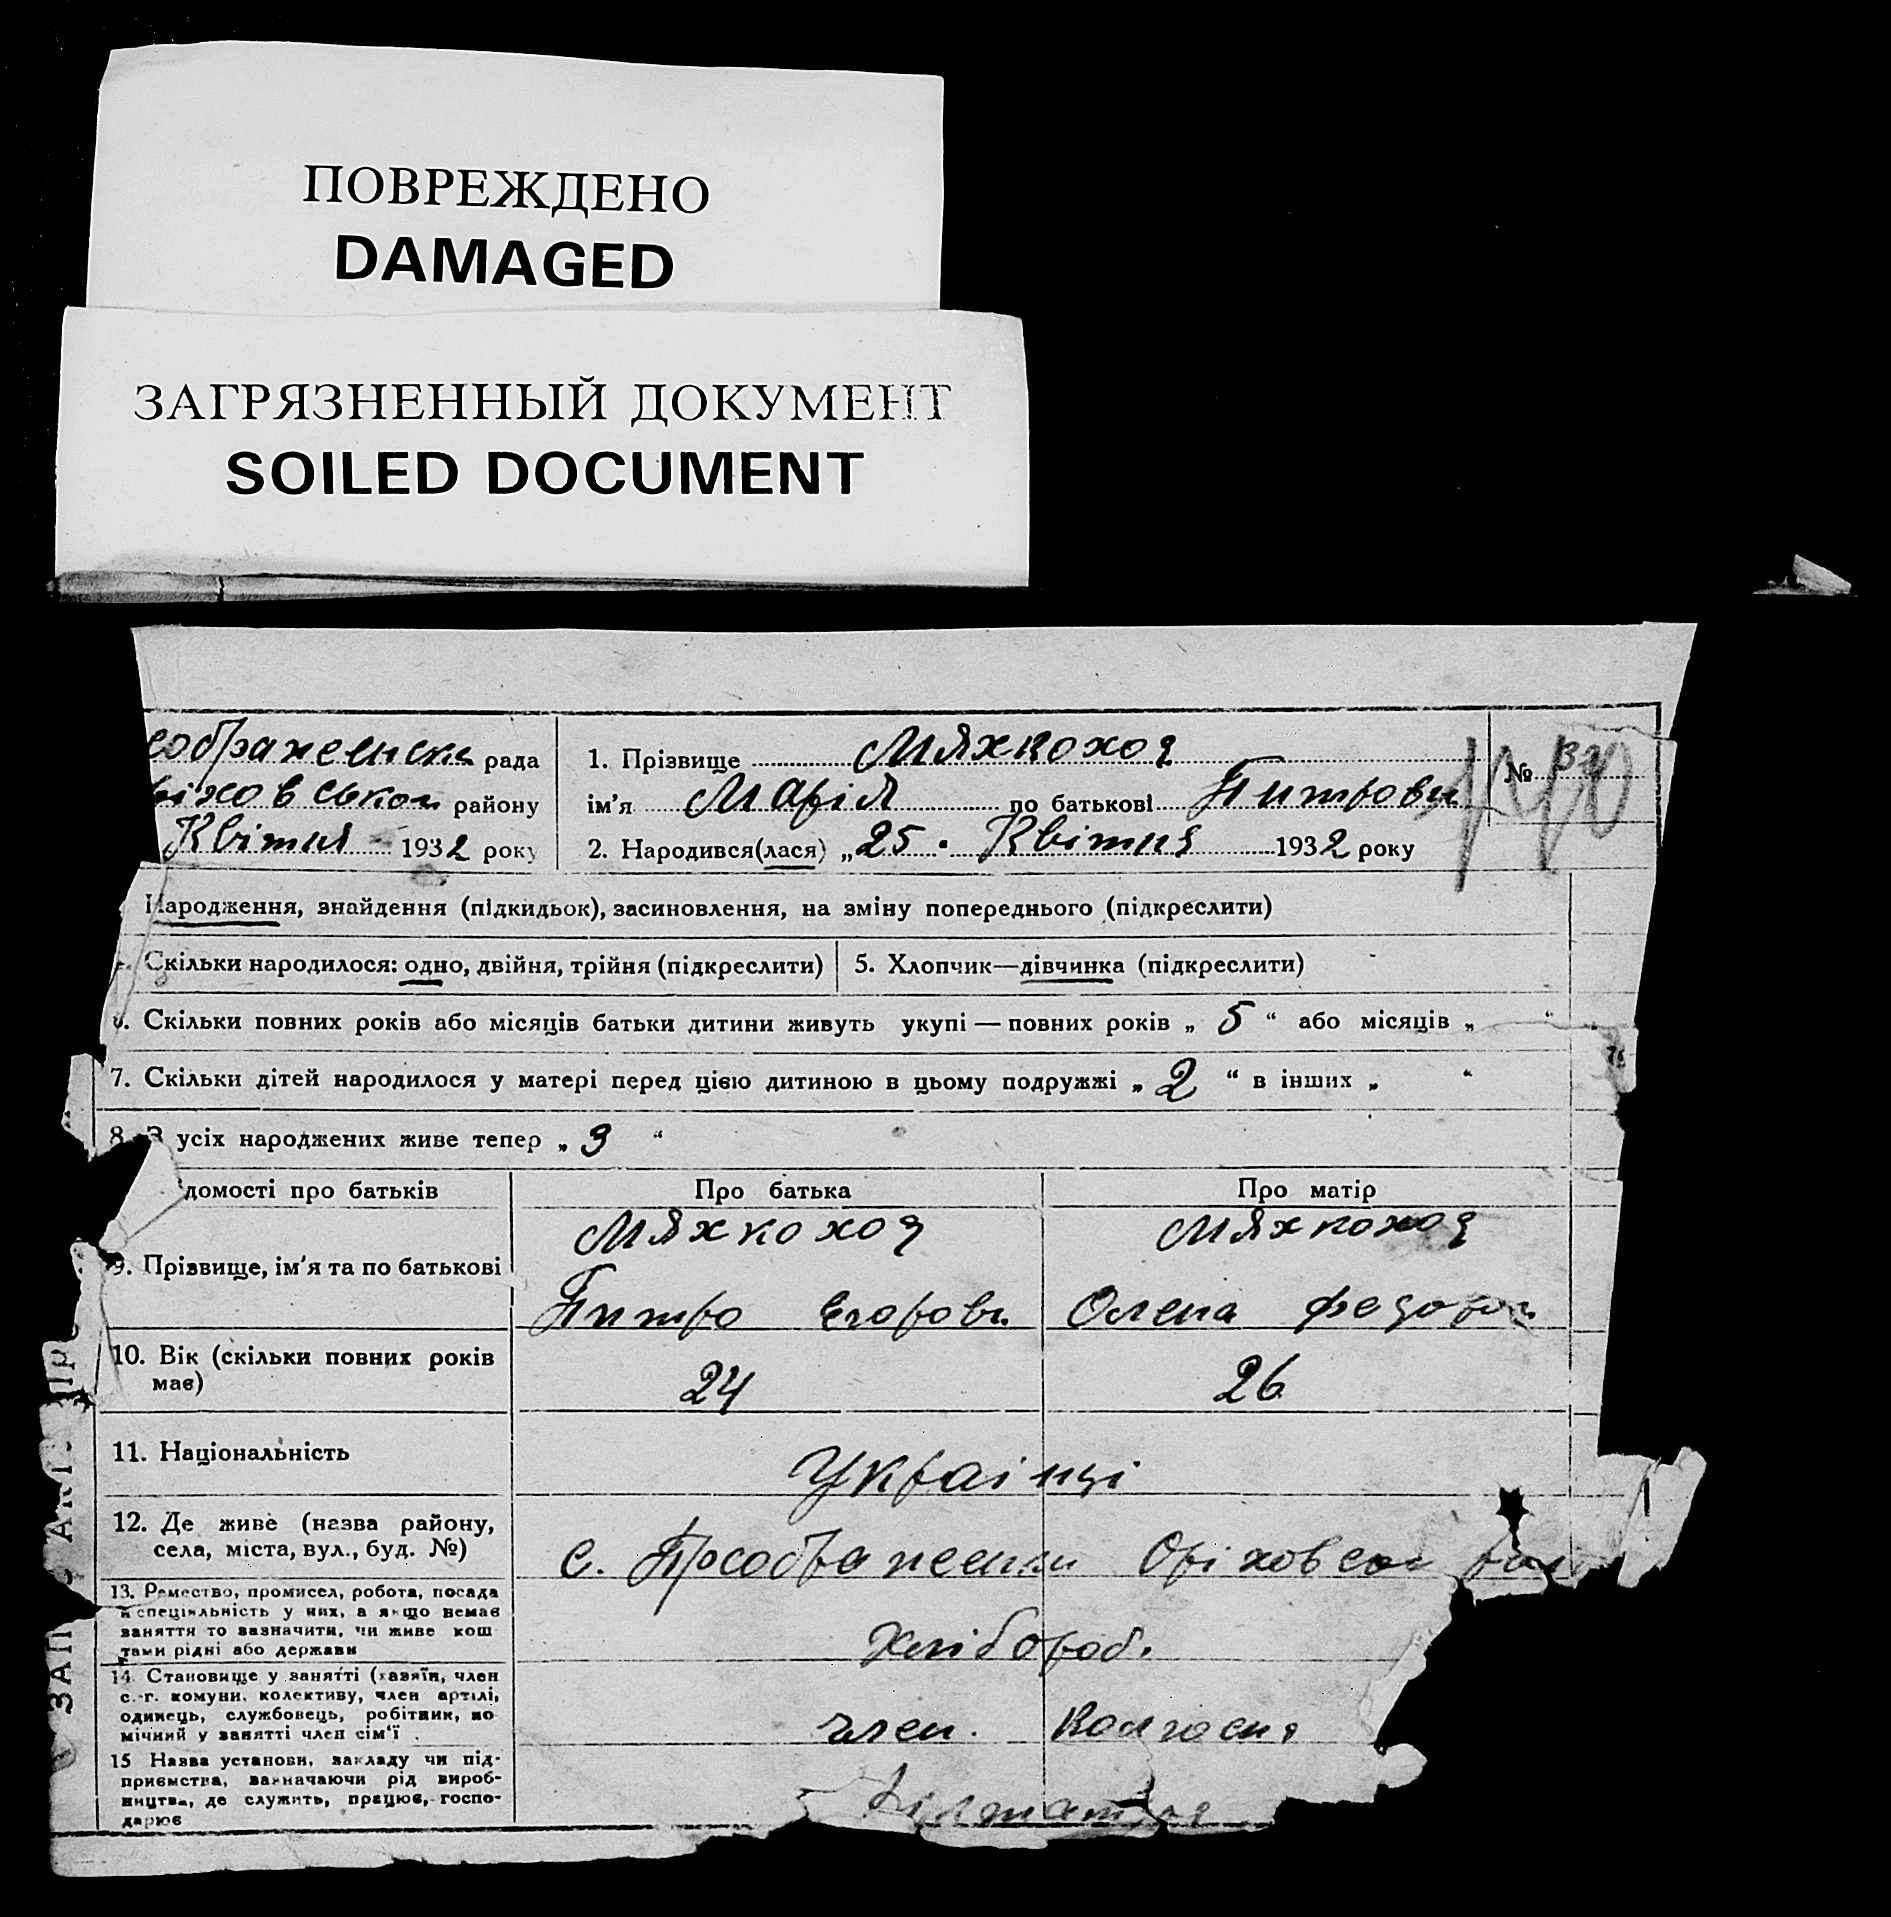 ПОВРЕЖДЕНО
DAMAGED
ЗАГРЯЗНЕННЫЙ ДОКУМЕНТ
SOILED DOCUMENT
еображенска рада
ріховською району
Квітня 1932 року
1. Прізвище Мяхкоход
ім'я Марія по батькові Питрови
2. Народився(лася) „25. Квітня 1932 року
№ 34
Народження, знайдення (підкидьок), засиновлення, на зміну попереднього (підкреслити)
Скільки народилося: одно, двійня, трійня (підкреслити)
5. Хлопчик—дівчинка (підкреслити)
6. Скільки повних років або місяців батьки дитини живуть укупі — повних років „ 5 “ або місяців „ “
7. Скільки дітей народилося у матері перед цією дитиною в цьому подружжі „ 2 “ в інших „ “
8. З усіх народжених живе тепер „ 3 “
домості про батьків Про батька Про матір
Мяхкоход Мяхкоход
9. Прізвище, ім'я та по батькові
Питро Егорови Олена Федоров
10. Вік (скільки повних років
має)
24 26
11. Національність
Українці
12. Де живе (назва району,
села, міста, вул., буд. №)
с. Преображенки Оріховсок рай
13. Ремество, промисел, робота, посада
й спеціяльність у них, а якщо немає
заняття то зазначити, чи живе кош
тами рідні або держави
Хлібороб.
14. Становище у занятті (хазяїн, член
с.-г. комуни, колективу, член артілі,
одинець, службовець, робітник, по
мічний у занятті член сім'ї
член. Колгоспу
15 Назва установи, закладу чи під-
приємства, зазначаючи рід вироб-
ництва, де служить, працює, госпо-
дарює
ЗАП